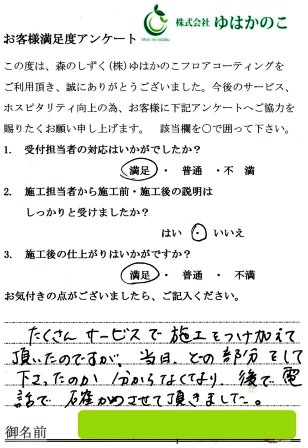 Mori no shizuku
株式会社 ゆはかのこ
お客様満足度アンケート
この度は、森のしずく(株)ゆはかのこフロアコーティングを
ご利用頂き、誠にありがとうございました。今後のサービス、
ホスピタリティ向上の為、お客様に下記アンケートへご協力を
賜りたくお願い申し上げます。 該当欄を○で囲って下さい。
1. 受付担当者の対応はいかがでしたか？
満足 ・ 普通 ・不 満
2. 施工担当者から施工前・施工後の説明は
しっかりと受けましたか？
はい ・ いいえ
3. 施工後の仕上がりはいかがですか？
満足 ・ 普通 ・ 不満
お気付きの点がございましたら、ご記入ください。
たくさん サービスで 施工をつけ加えて
頂いたのですが、当日、どの部分をして
下さったのか 分からなくなり、後で電
話で 確かめさせて頂きました。
御名前